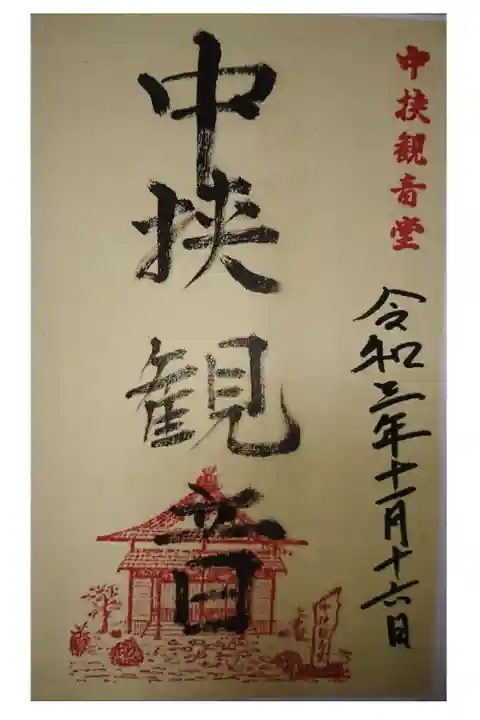 中挟観音堂
令和三年十一月十六日
中挟観音